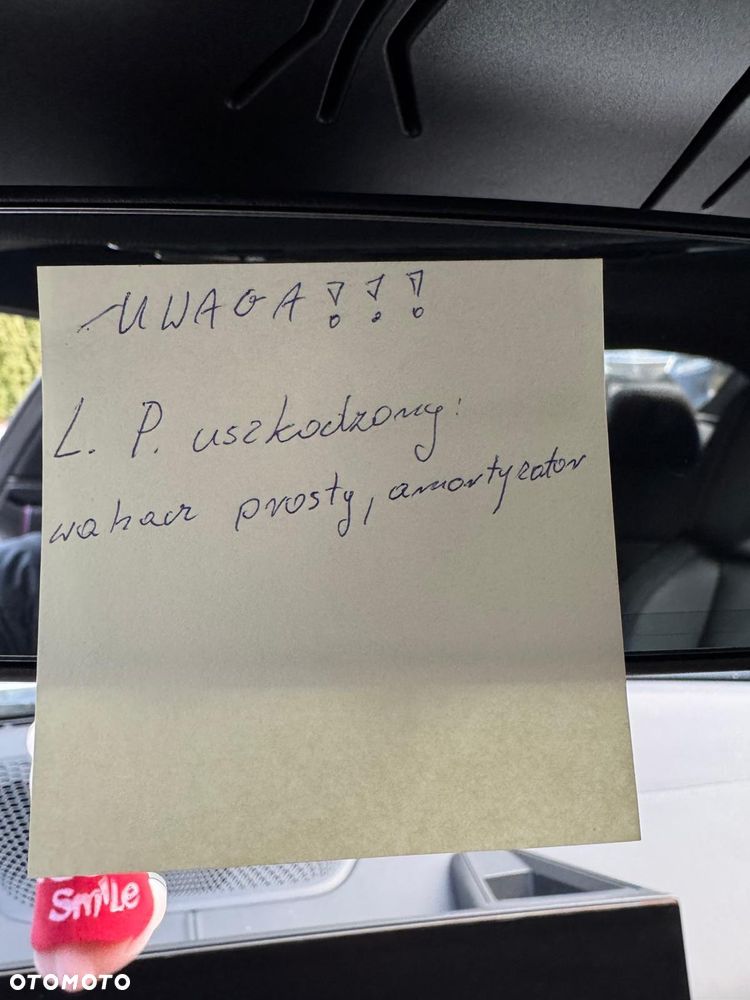 UWAGA !!!
L. P. uszkodzony:
wahacz prosty, amortyzator
Smile
OTOMOTO